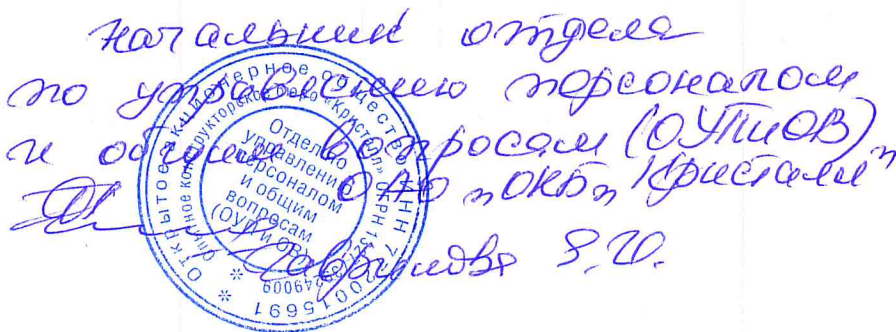 Начальник отдела
по управлению персоналом
и общим вопросам (ОУПиОВ)
ОАО "ОКБ "Кристалл"
Гаврилова
Открытое акционерное общество * ИНН
конструкторское бюро «Кристалл»
Отдел по
управлению
персоналом
и общим
вопросам
(ОУП и ОВ)